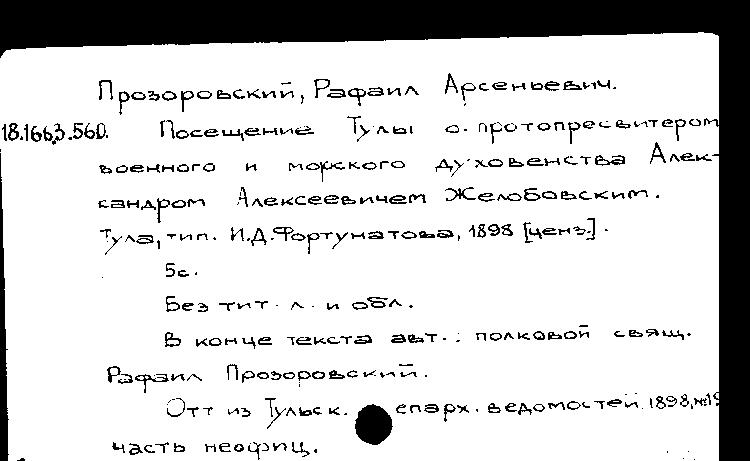 Прозоровский, Рафаил Арсеньевич.
18.166.3.560. Посещение Тулы о. протопресвитером
военного и морского духовенства Алек-
сандром Алексеевичем Желобовским.
Тула, тип. И.Д.Фортунатова, 1898 [ценз.].
5с.
Без тит. л. и обл.
В конце текста авт.: полковой свящ.
Рафаил Прозоровский.
Отт из Тульск. епарх. ведомостей 1898, №19
часть неофиц.